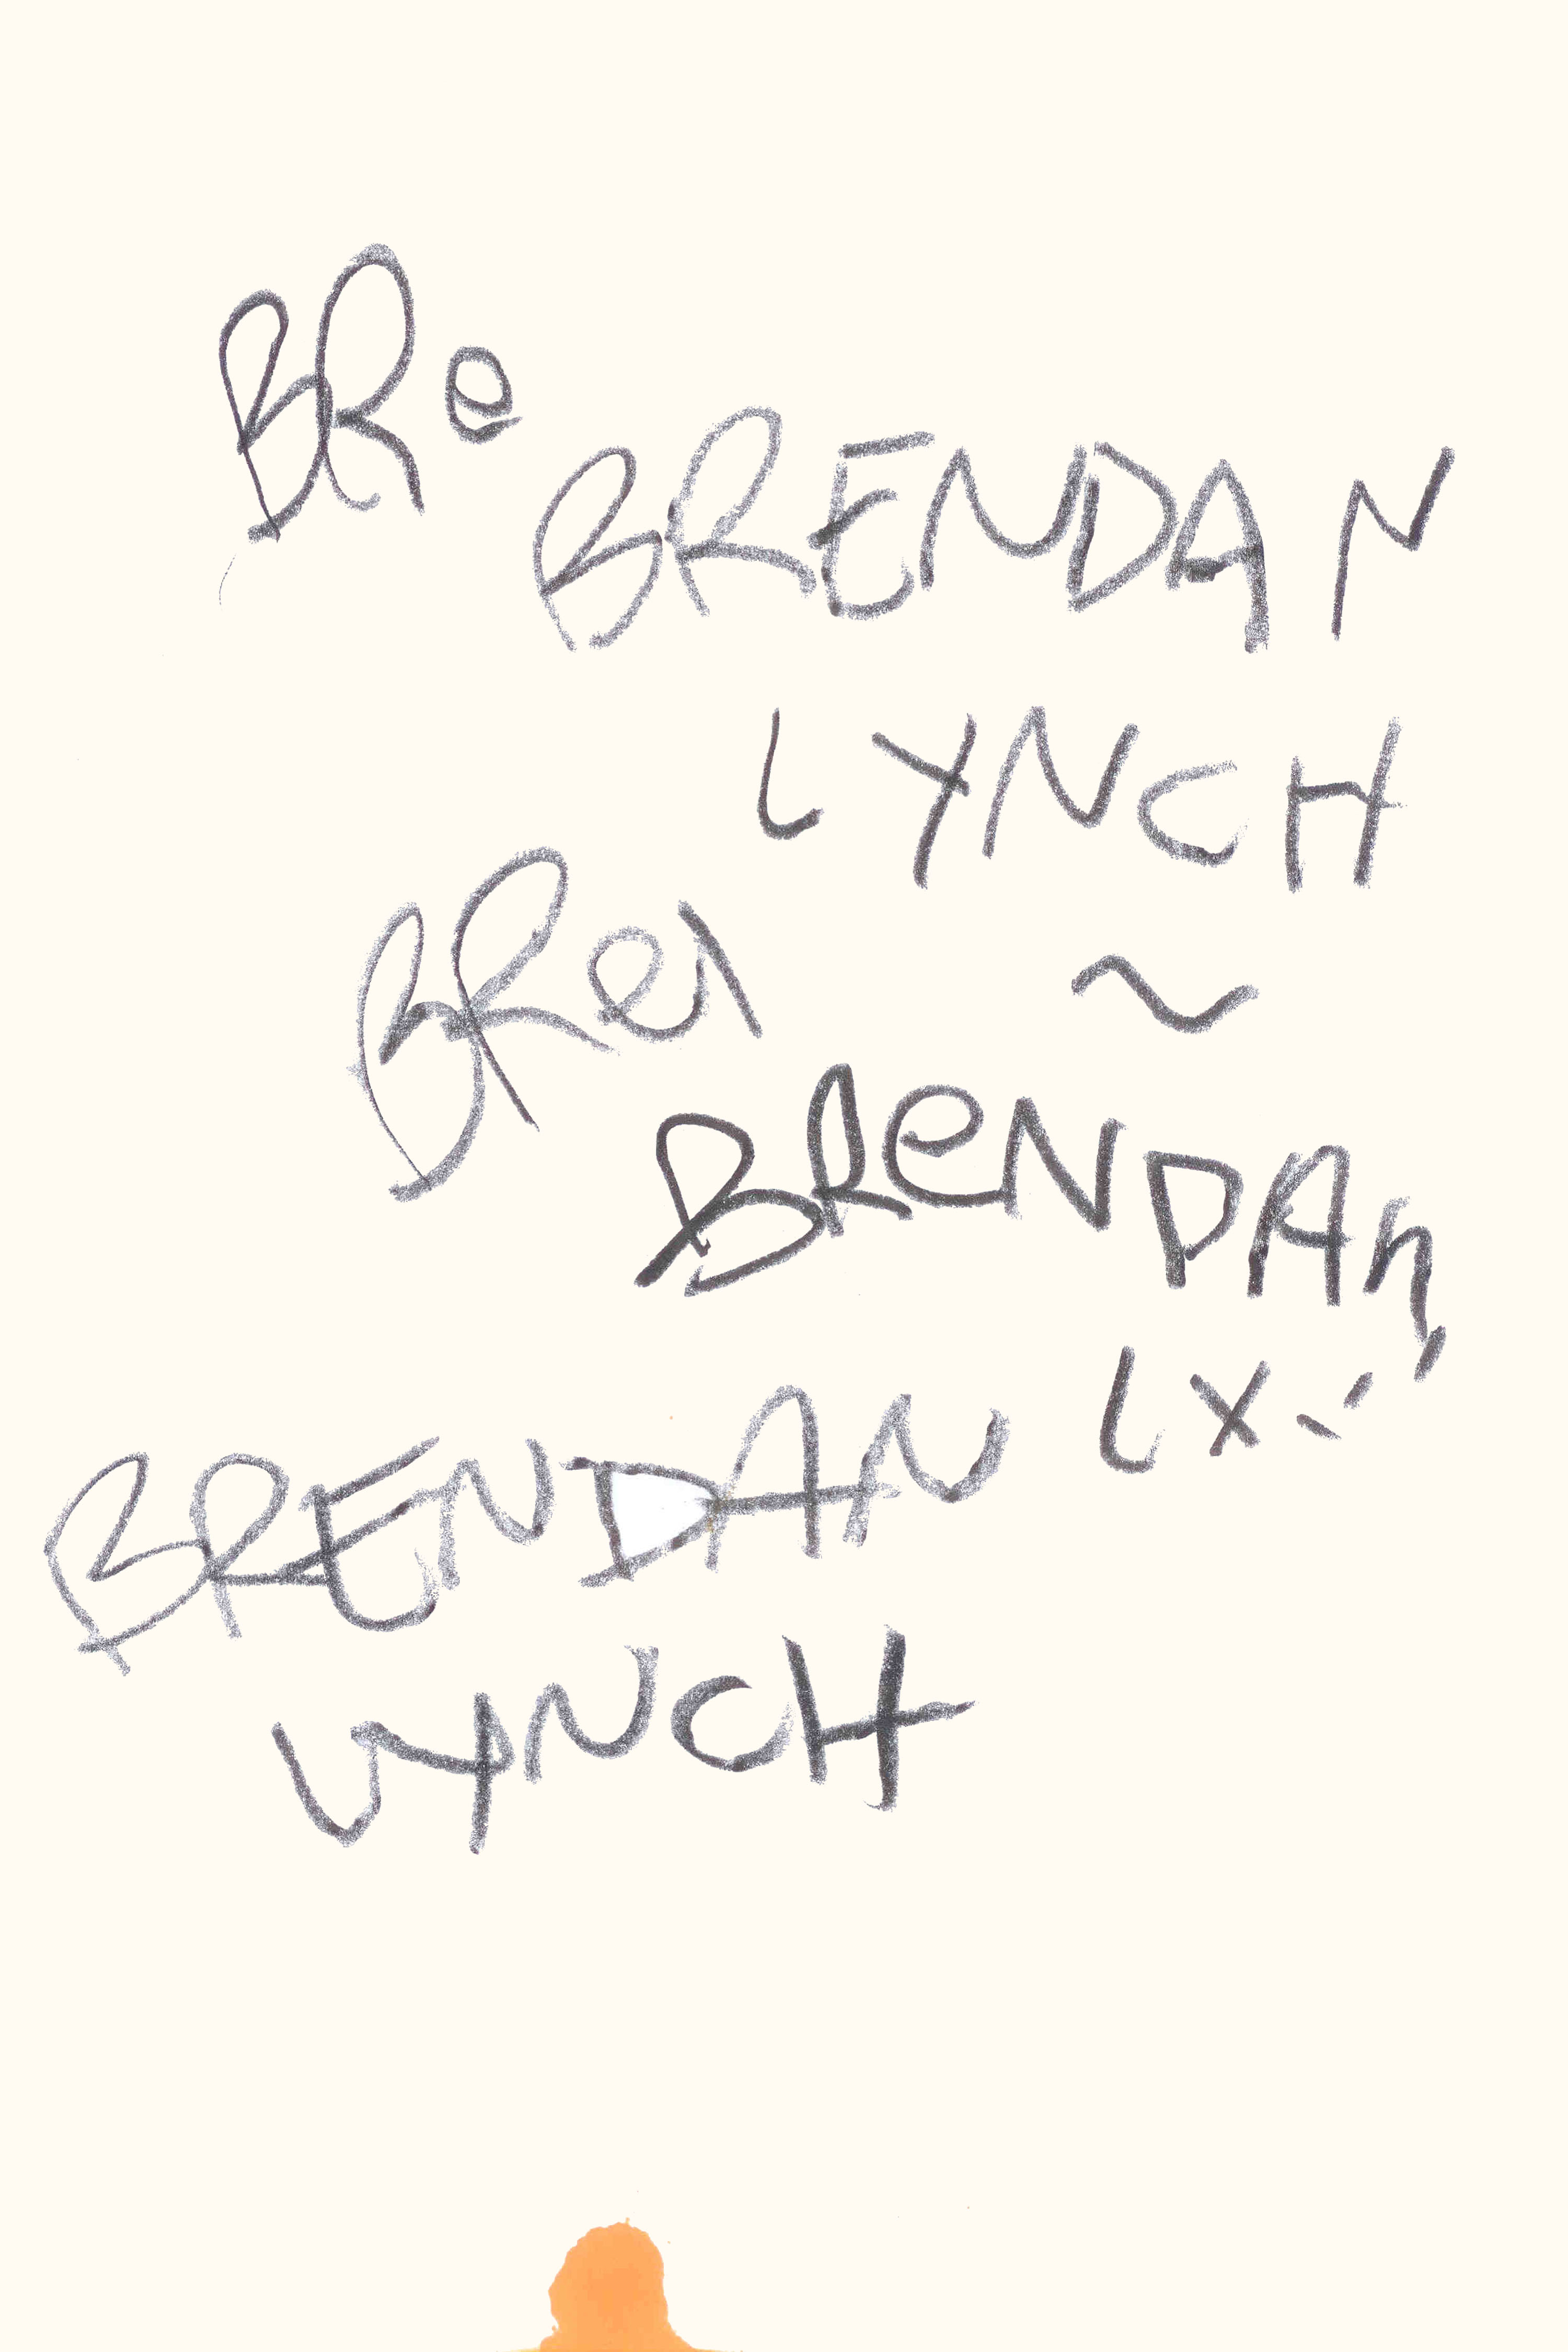 BRe
BRENDAN
LYNCH
BRe
~
BReNDAn
BRENDAN
LYNCH